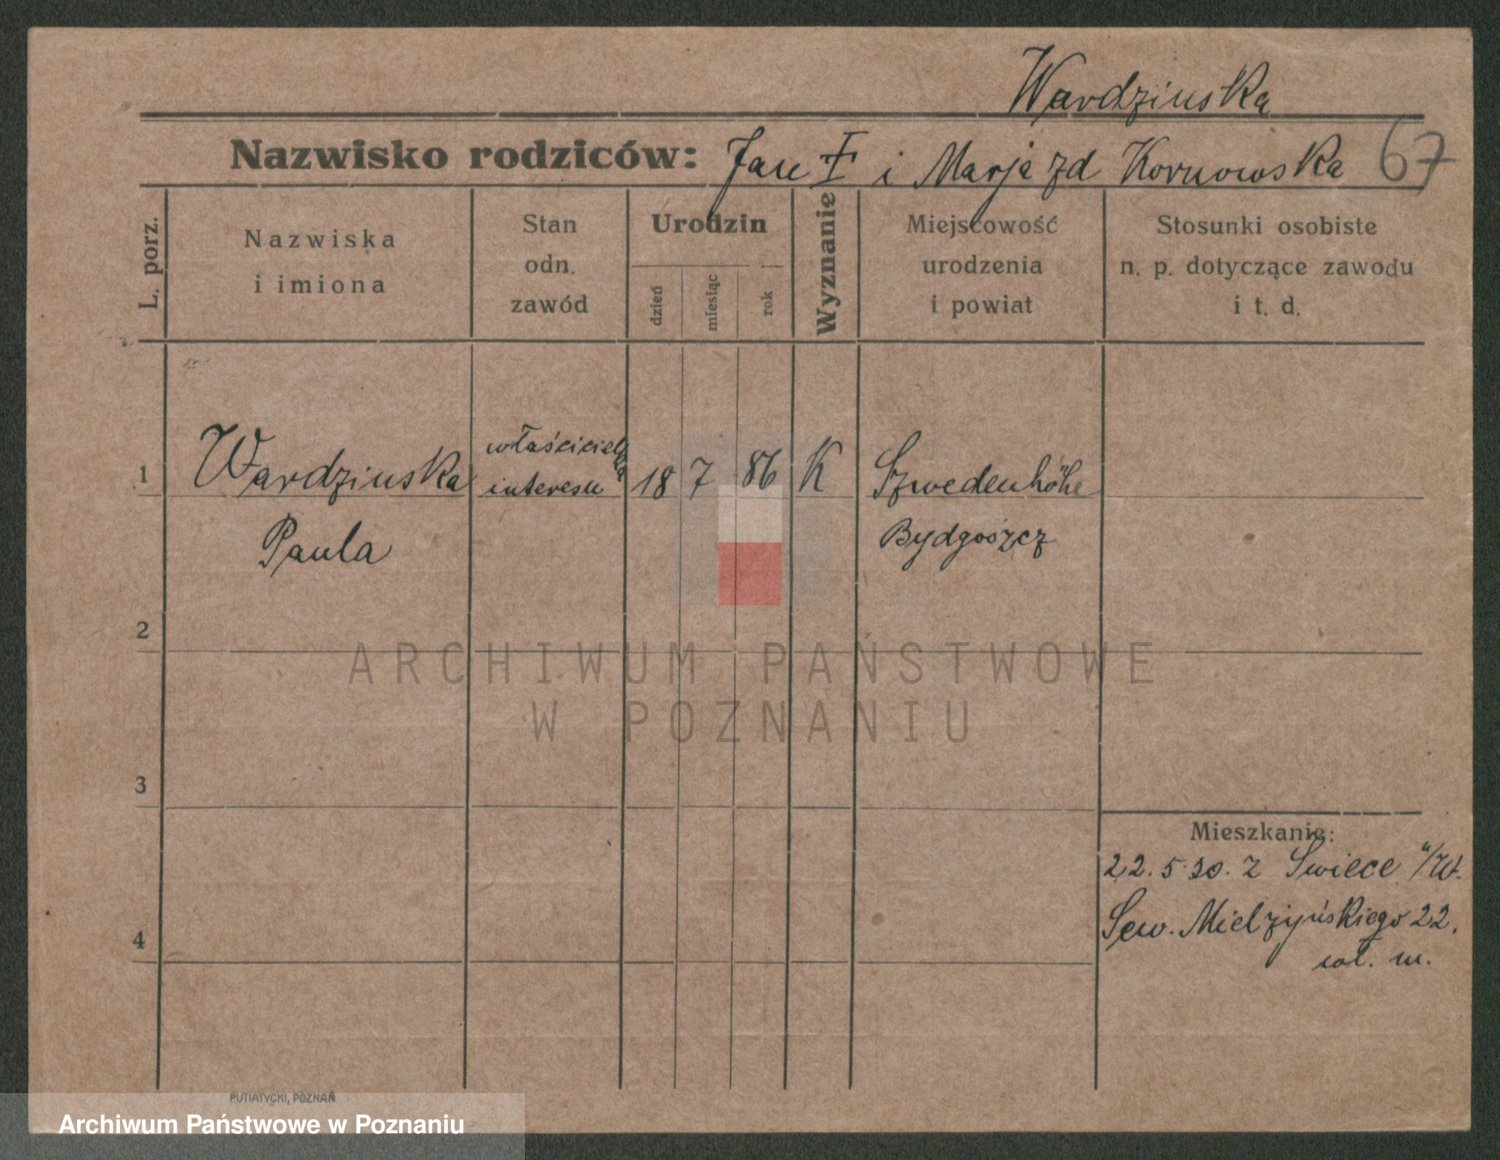 Wardzinska
Nazwisko rodziców: Jan I i Marja zd Kornowska 67
L. porz.
Nazwiska
i imiona
Stan
odn.
zawód
Urodzin
dzień
miesiąc
rok
Wyznanie
Miejscowość
urodzenia
i powiat
Stosunki osobiste
n. p. dotyczące zawodu
i t. d.
1 Wardzinska właścicielka interesu 18 7 86 K Szwedenhöhe
Paula Bydgoszcz
2
3
4
Mieszkanie:
22. 5. 20. z Swiece n/W.
Sew. Mielzyńskiego 22.
wł. m.
ARCHIWUM PAŃSTWOWE
W POZNANIU
PUTIATYCKI, POZNAŃ
Archiwum Państwowe w Poznaniu